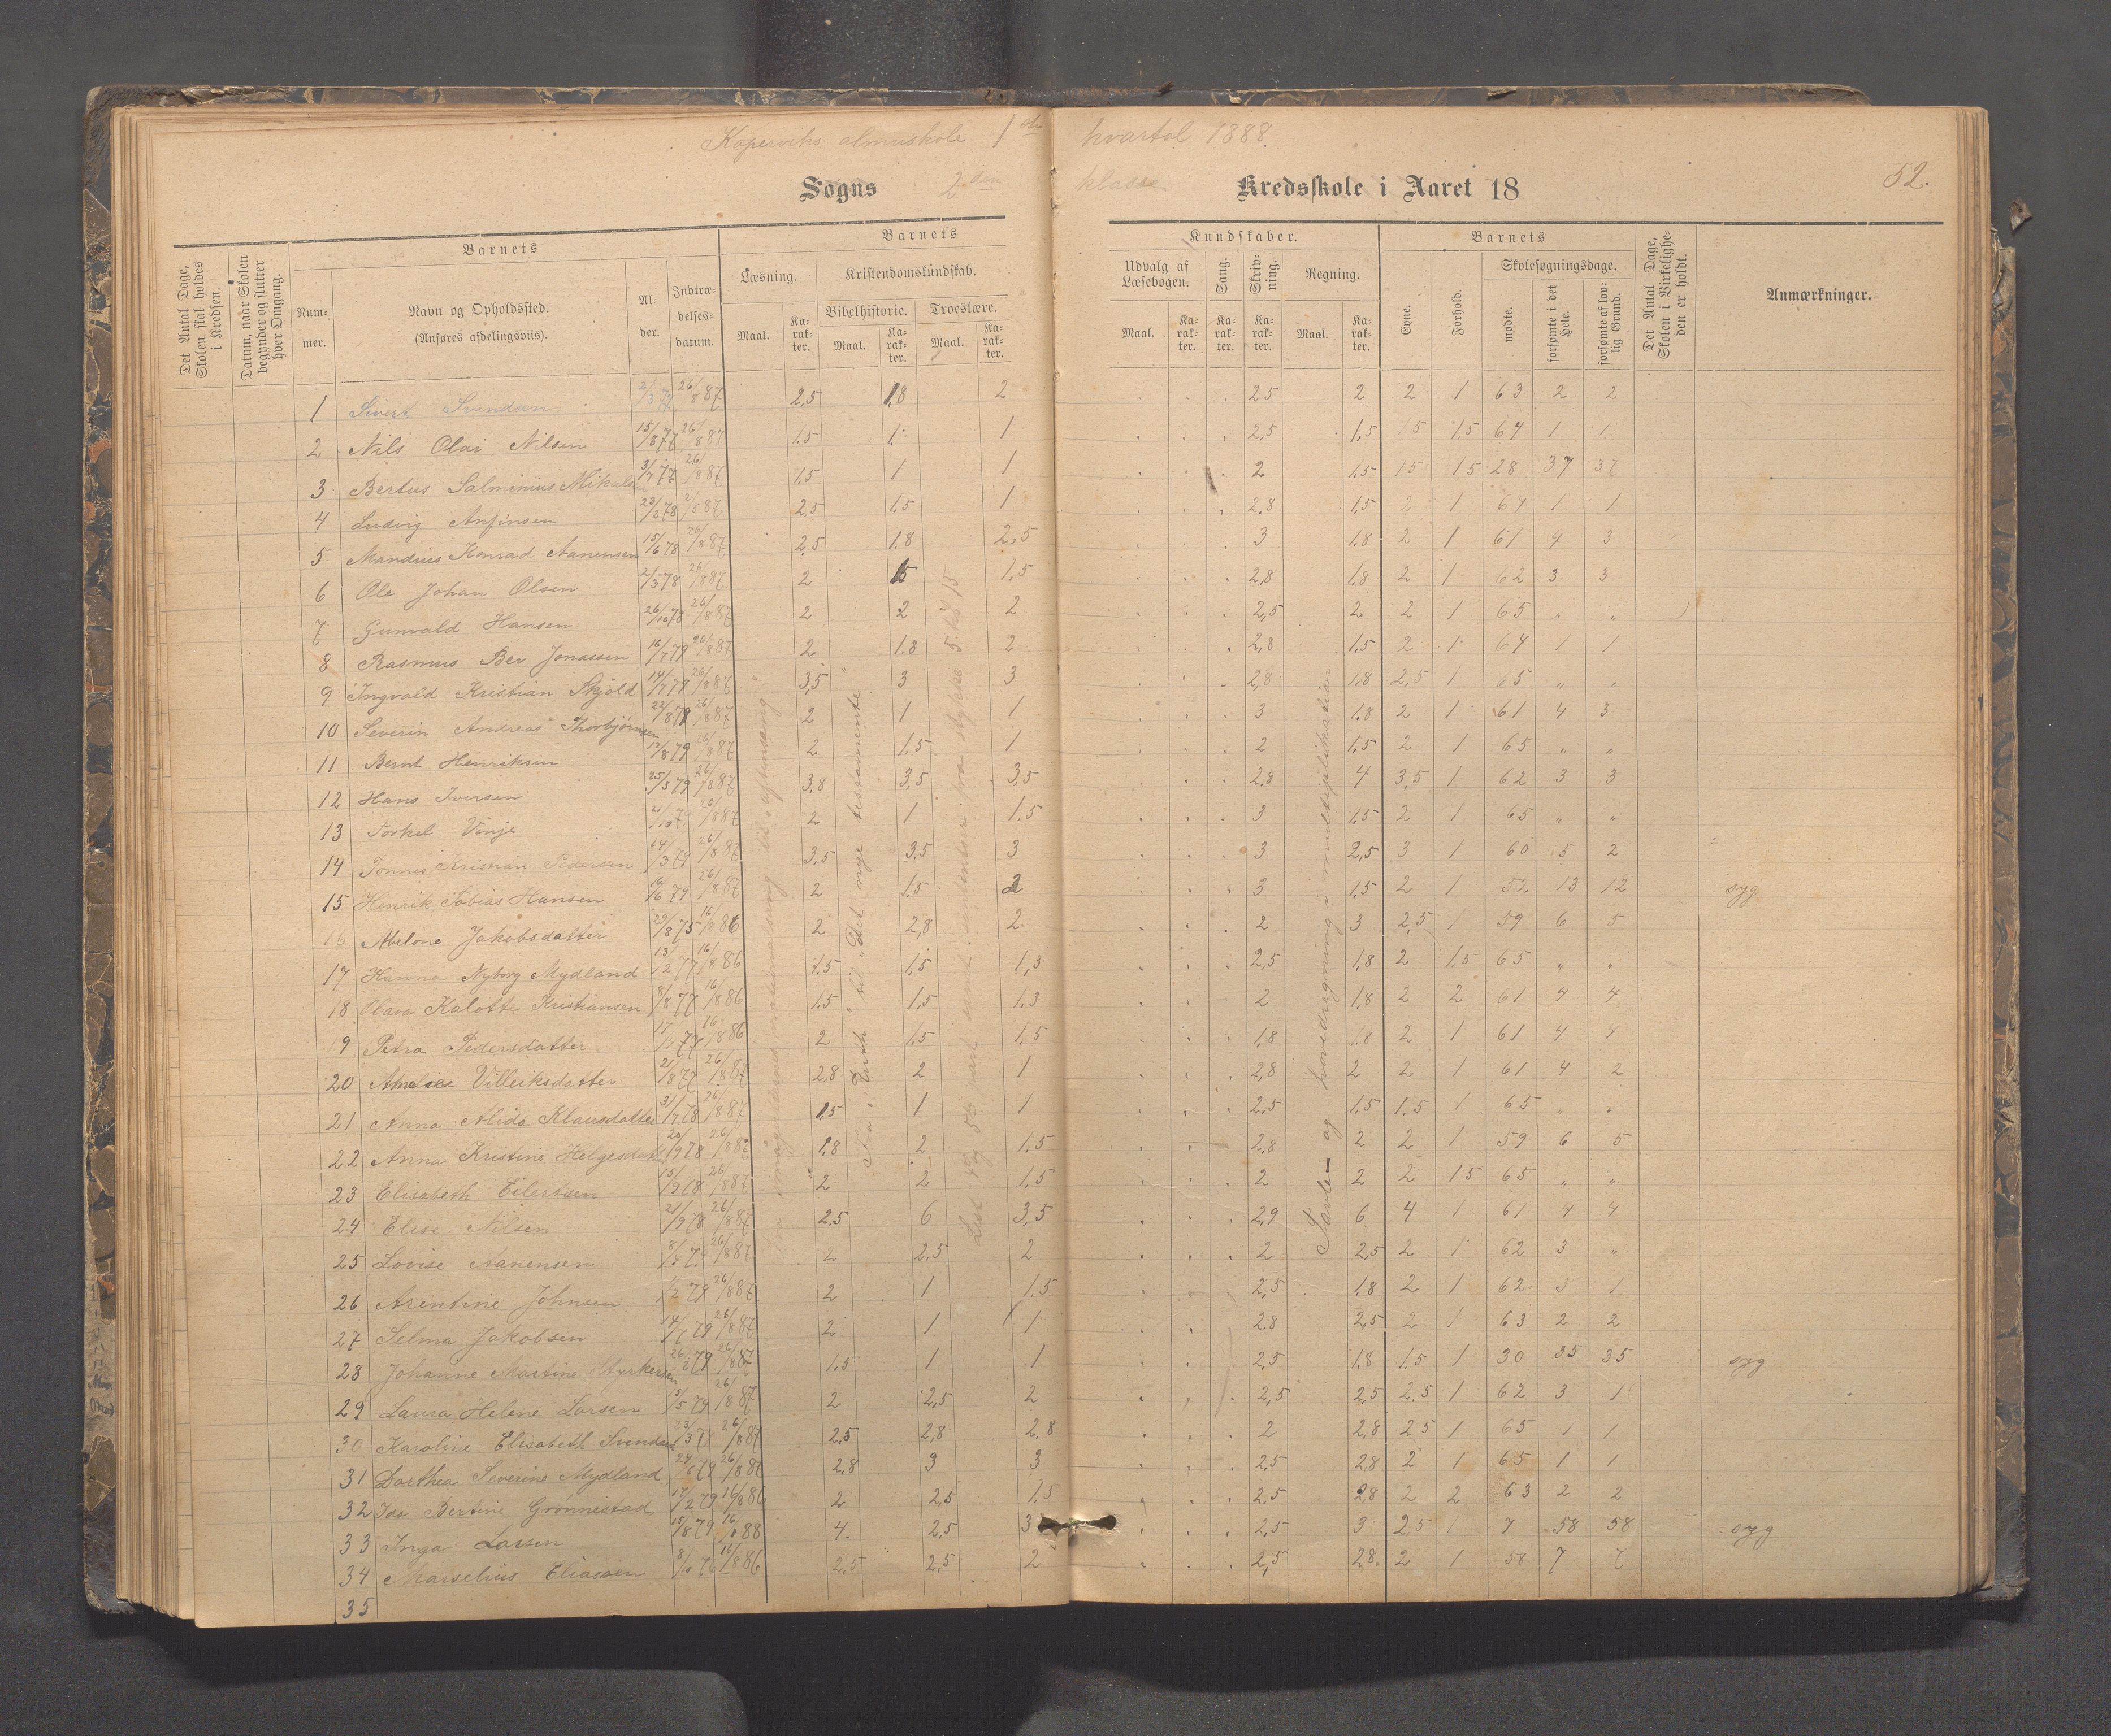 Kopervika almuskole 1ste hvartal 1888.
Sogns 2den klasse Kredsskole i Aaret 18 52.
Det Antal Dage, Skolen skal holdes i Kredsen.
Datum, naar Skolen begynder og slutter hver Omgang.
Barnets
Nummer.
Navn og Opholdssted.
(Anføres afdelingsviis).
Alder.
Indtrædelsesdatum.
Barnets Kundskaber.
Læsning.
Maal. Karakter.
Kristendomskundskab.
Bibelhistorie.
Maal. Karakter.
Troeslære.
Maal. Karakter.
Udvalg af Læsebogen.
Maal. Karakter.
Sang.
Karakter.
Skrivning.
Karakter.
Regning.
Maal. Karakter.
Barnets
Evne.
Forhold.
Skolesøgningsdage.
mødte.
forsømte i det Hele.
forsømte af lovlig Grund.
Det Antal Dage, Skolen i Virkeligheden er holdt.
Anmærkninger.
1 Sivert Svendsen 2/3 77 26/8 87 2,5 1,8 2 2,5 2 2 1 63 2 2
2 Nils Olai Nilsen 15/8 77 26/8 87 1,5 1 1 2,5 1,5 1,5 1,5 64 1 1
3 Bertus Salminius Mikals 3/7 77 26/8 87 1,5 1 1 2 1,5 1,5 1,5 28 37 37
4 Ludvig Anfinsen 23/2 78 2/5 87 2,5 1,5 1 2,8 1,5 2 1 64 1 1
5 Mandius Konrad Aanensen 15/6 78 26/8 87 2,5 1,8 2,5 3 1,8 2 1 61 4 3
6 Ole Johan Olsen 2/3 78 26/8 87 2 1,5 1,5 2,8 1,8 2 1 62 3 3
7 Gunvald Hansen 26/10 78 26/8 87 2 2 2 2,5 2 2 1 65 " "
8 Rasmus Ber Jonassen 16/7 79 26/8 87 2 1,8 2 2,8 1,5 2 1 64 1 1
9 Ingvald Kristian Skjold 14/7 79 26/8 87 3,5 3 3 2,8 1,8 2,5 1 65 " "
10 Severin Andreas Thorbjørnsen 22/8 79 26/8 87 2 1 1 3 1,8 2 1 61 4 3
11 Bernt Henriksen 12/8 79 26/8 87 2 1,5 1 2 1,5 2 1 65 " "
12 Hans Iversen 25/3 79 26/8 87 3,8 3,5 3,5 2,8 4 3,5 1 62 3 3
13 Torkel Vinje 26/8 87 2 1 1,5 3 1,5 2 1 65 " "
14 Tønnes Kristian Pedersen 14/3 79 26/8 87 3,5 3,5 3 3 2,5 3 1 60 5 2
15 Henrik Tobias Hansen 16/6 79 26/8 87 2 1,5 2 3 1,5 2 1 52 13 12 syg
16 Abelone Jakobsdatter 29/8 75 16/8 86 2 2,8 2 2 3 2,5 1 59 6 5
17 Hanna Nyborg Mydland 13/12 77 16/8 86 1,5 1,5 1,3 2,5 1,8 2 1,5 65 " "
18 Olava Kalotte Kristiansen 8/8 77 16/8 86 1,5 1,5 1,3 2 1,8 2 2 61 4 4
19 Petra Pedersdatter 17/7 77 16/8 86 2 1,5 1,5 1,8 1,8 2 1 61 4 4
20 Amalie Villeiksdatter 21/8 77 26/8 87 2,8 2 1 2,8 2 2 1 61 4 2
21 Anna Alida Klausdatter 31/7 78 26/8 87 1,5 1 1 2,5 1,5 1,5 1 65 " "
22 Anna Kristine Helgesdat 20/9 78 26/8 87 1,8 2 1,5 2,8 2 2 1 59 6 5
23 Elisabeth Eilertsen 15/9 78 26/8 87 2 2 1,5 2 2 2 1,5 65 " "
24 Elise Nilsen 21/9 78 26/8 87 2,5 6 3,5 2,9 6 4 1 61 4 4
25 Lovise Aanensen 26/8 87 2 2,5 2 2 2,5 2 1 62 3 "
26 Arentine Johnsen 1/2 79 26/8 87 2 1 1,5 2,5 1,8 2 1 62 3 1
27 Selma Jakobsen 14/7 79 26/8 87 2 1 1 2,8 2,5 2 1 63 2 2
28 Johanne Martine Styrkersen 26/2 79 26/8 87 1,5 1 1 2,5 1,8 1,5 1 30 35 35 syg
29 Laura Helene Larsen 5/5 79 26/8 87 2 2,5 2 2,5 2,5 2,5 1 62 3 1
30 Karoline Elisabeth Svendsen 26/8 87 2,5 2,8 2,8 2 2,8 2,5 1 65 1 1
31 Dorthea Severine Mydland 24/6 79 26/8 87 2,8 3 3 2,5 2,8 2 1 65 1 1
32 Ida Bertine Grønnestad 17/2 79 16/8 86 2 2,5 1,5 2,5 2,8 2 2 63 2 2
33 Inga Larsen 15/8 79 16/1 88 4 2,5 3 2,5 3 2,5 1 7 58 58 syg
34 Marselius Eliassen 16/8 86 2,5 2,5 2 2,5 2,8 2 1 58 7 7
35
fra "Ruth" til "Det nye testamente"
Tavle- og hovedregning i multiplikation